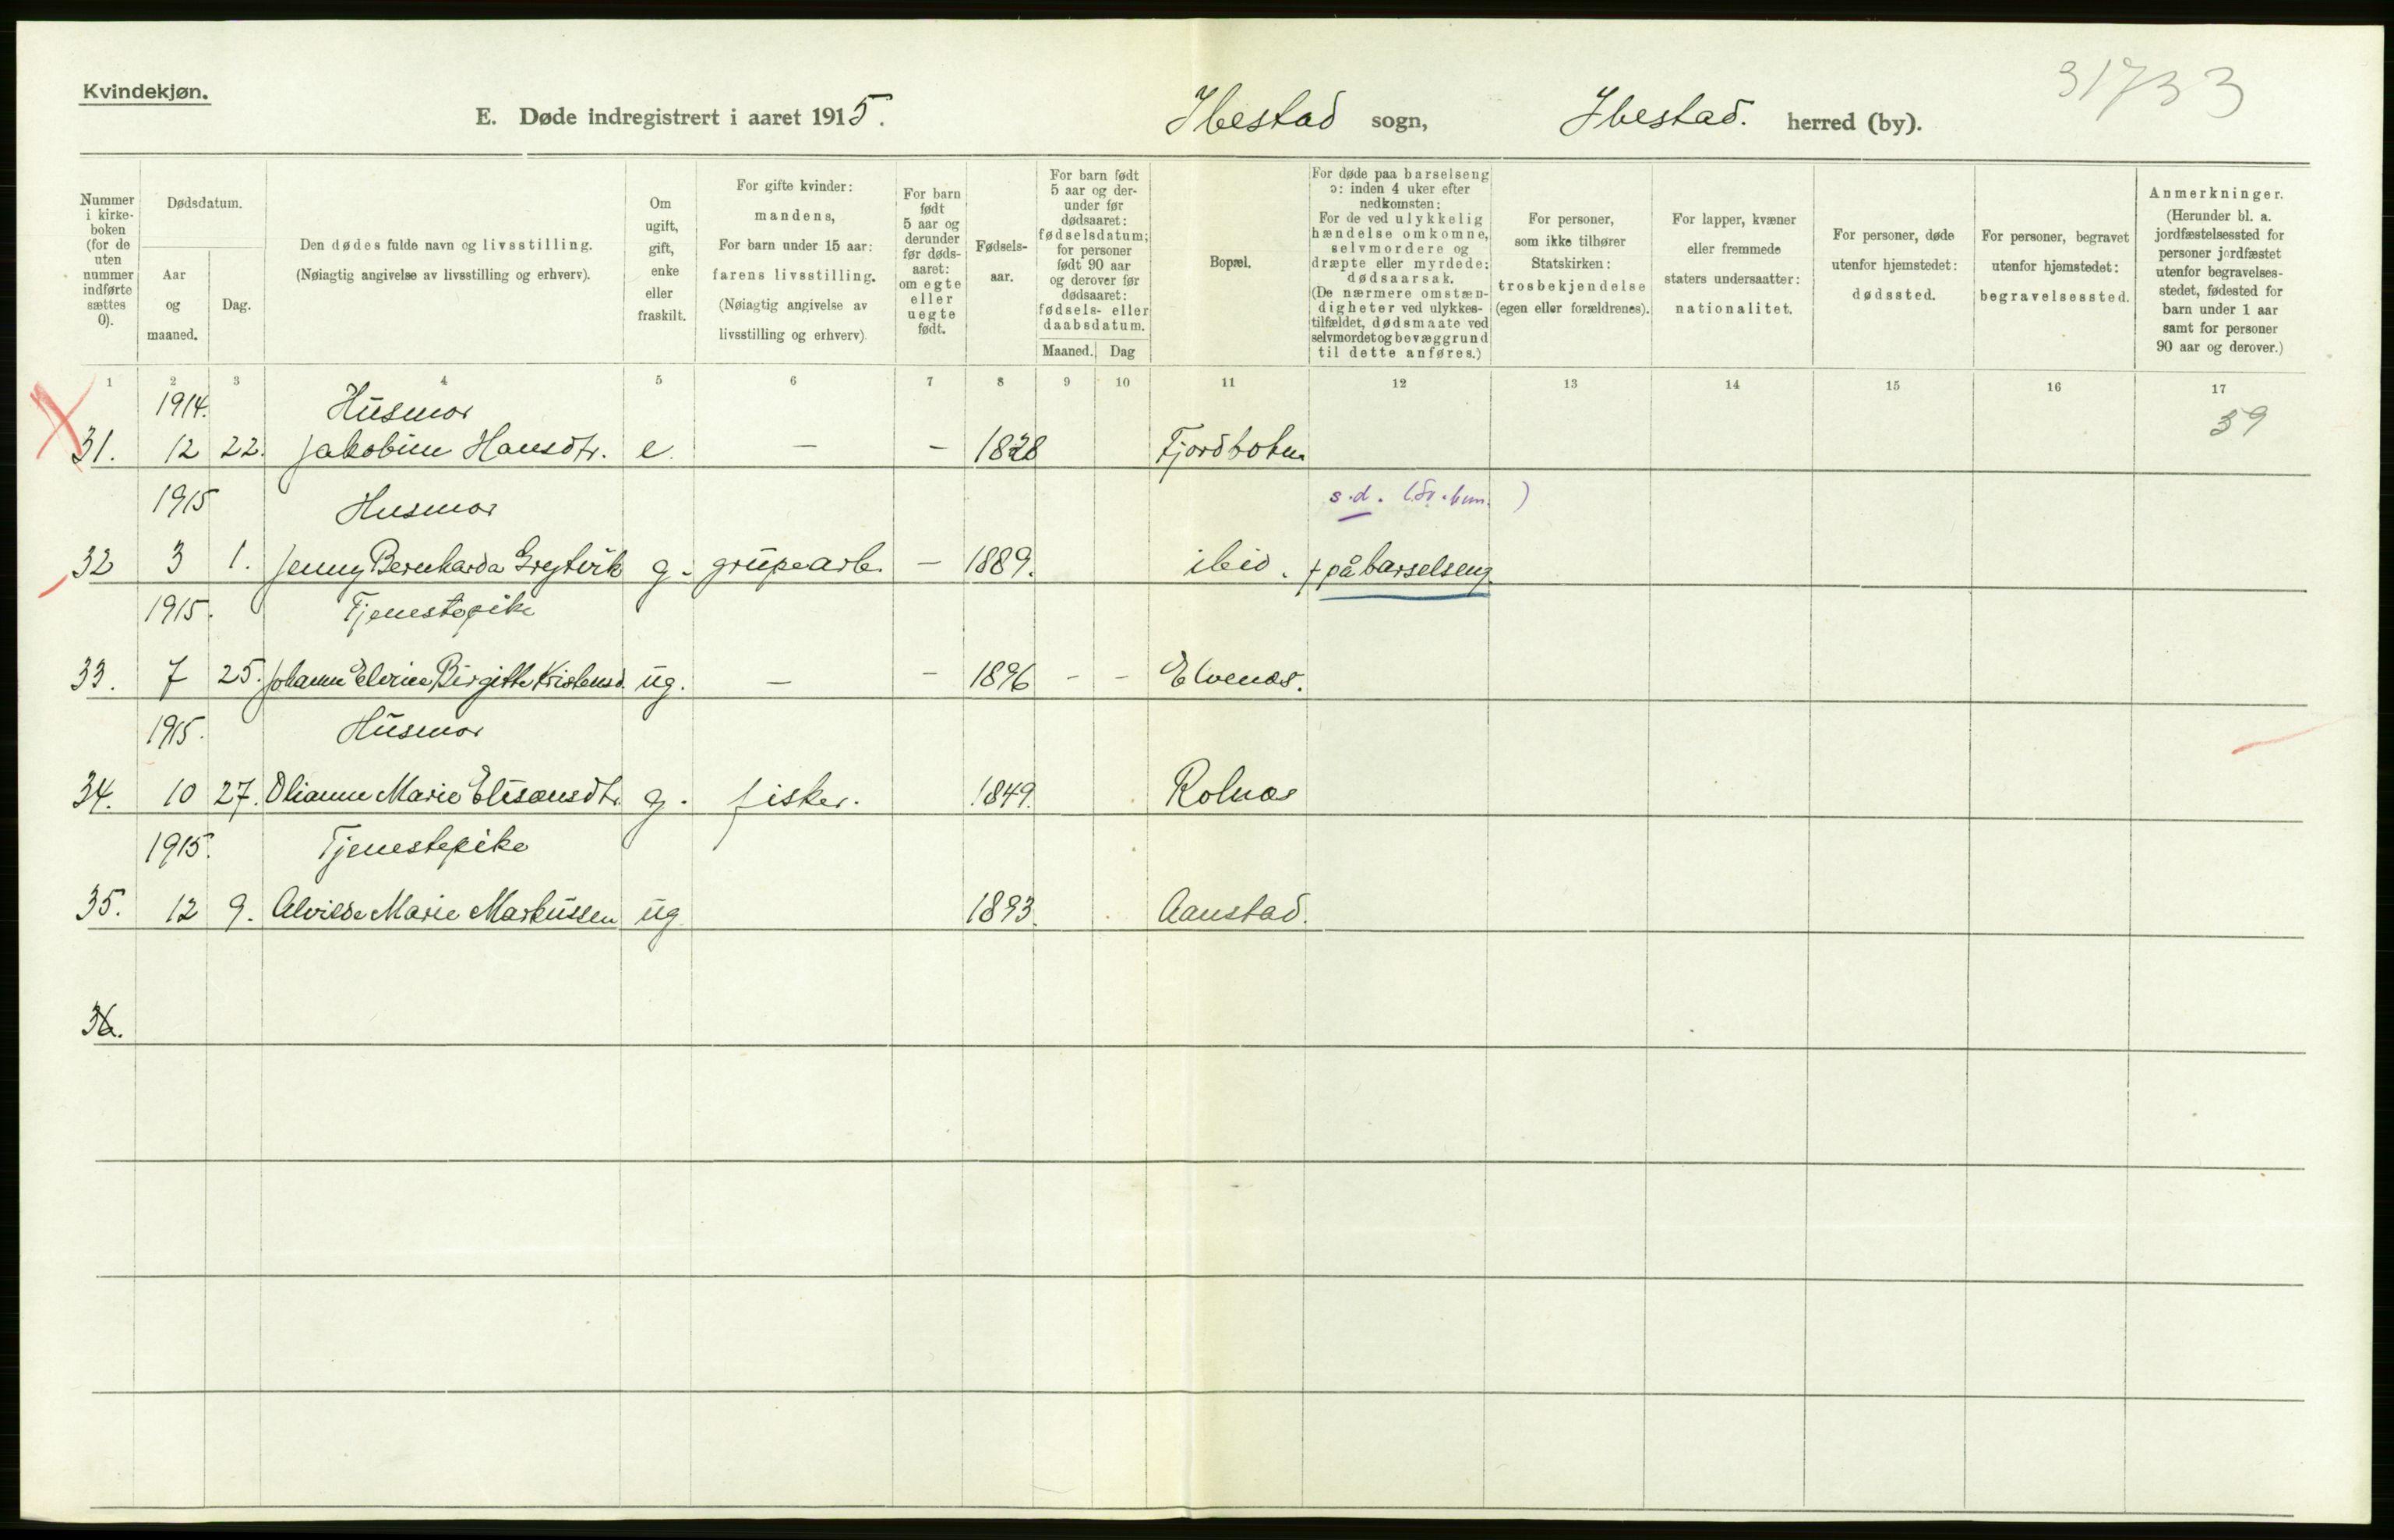 Kvindekjøn.
31733
E. Døde indregistrert i aaret 1915. Ibestad sogn, Ibestad. herred (by).
Nummer i kirke-boken (for de uten nummer indførte sættes 0).
Dødsdatum.
Aar og maaned.
Dag.
Den dødes fulde navn og livsstilling.
(Nøiagtig angivelse av livsstilling og erhverv).
Om ugift, gift, enke eller fraskilt.
For gifte kvinder: mandens,
For barn under 15 aar: farens livsstilling.
(Nøiagtig angivelse av livsstilling og erhverv)
For barn født 5 aar og derunder før døds-aaret: om egte eller uegte født.
Fødsels-aar.
For barn født 5 aar og der-under før dødsaaret: fødselsdatum; for personer født 90 aar og derover før dødsaaret: fødsels- eller daabsdatum.
Maaned. Dag
Bopæl.
For døde paa barselseng ɔ: inden 4 uker efter nedkomsten:
For de ved ulykkelig hændelse omkomne, selvmordere og dræpte eller myrdede: dødsaarsak.
(De nærmere omstæn-digheter ved ulykkes-tilfældet, dødsmaate ved selvmordet og bevæggrund til dette anføres.)
For personer, som ikke tilhører Statskirken: trosbekjendelse (egen eller forældrenes).
For lapper, kvæner eller fremmede staters undersaatter: nationalitet.
For personer, døde utenfor hjemstedet: dødssted.
For personer, begravet utenfor hjemstedet: begravelsessted.
Anmerkninger.
(Herunder bl. a. jordfæstelsessted for personer jordfæstet utenfor begravelses-stedet, fødested for barn under 1 aar samt for personer 90 aar og derover.)
1 2 3 4 5 6 7 8 9 10 11 12 13 14 15 16 17
1914. Husmor
31. 12 22. Jakobine Hansdtr. e. — – 1828 Fjordbotn 39
1915 Husmor s.d.
32 3 1. Jenny Bernharda Grejtvik g. grupearb. – 1889. ibid. † på barselseng
1915. Tjenestepike
33. 7 25. Johanne Elvine Birgitte Kristensd. ug. — – 1896 – – Elvenæs.
1915. Husmor
34. 10 27. Olianne Marie Elisæusdtr. g. fisker. 1849. Rolnæs
1915. Tjenestepike
35. 12 9. Alvilde Marie Markussen ug 1893. Aanstad.
36.